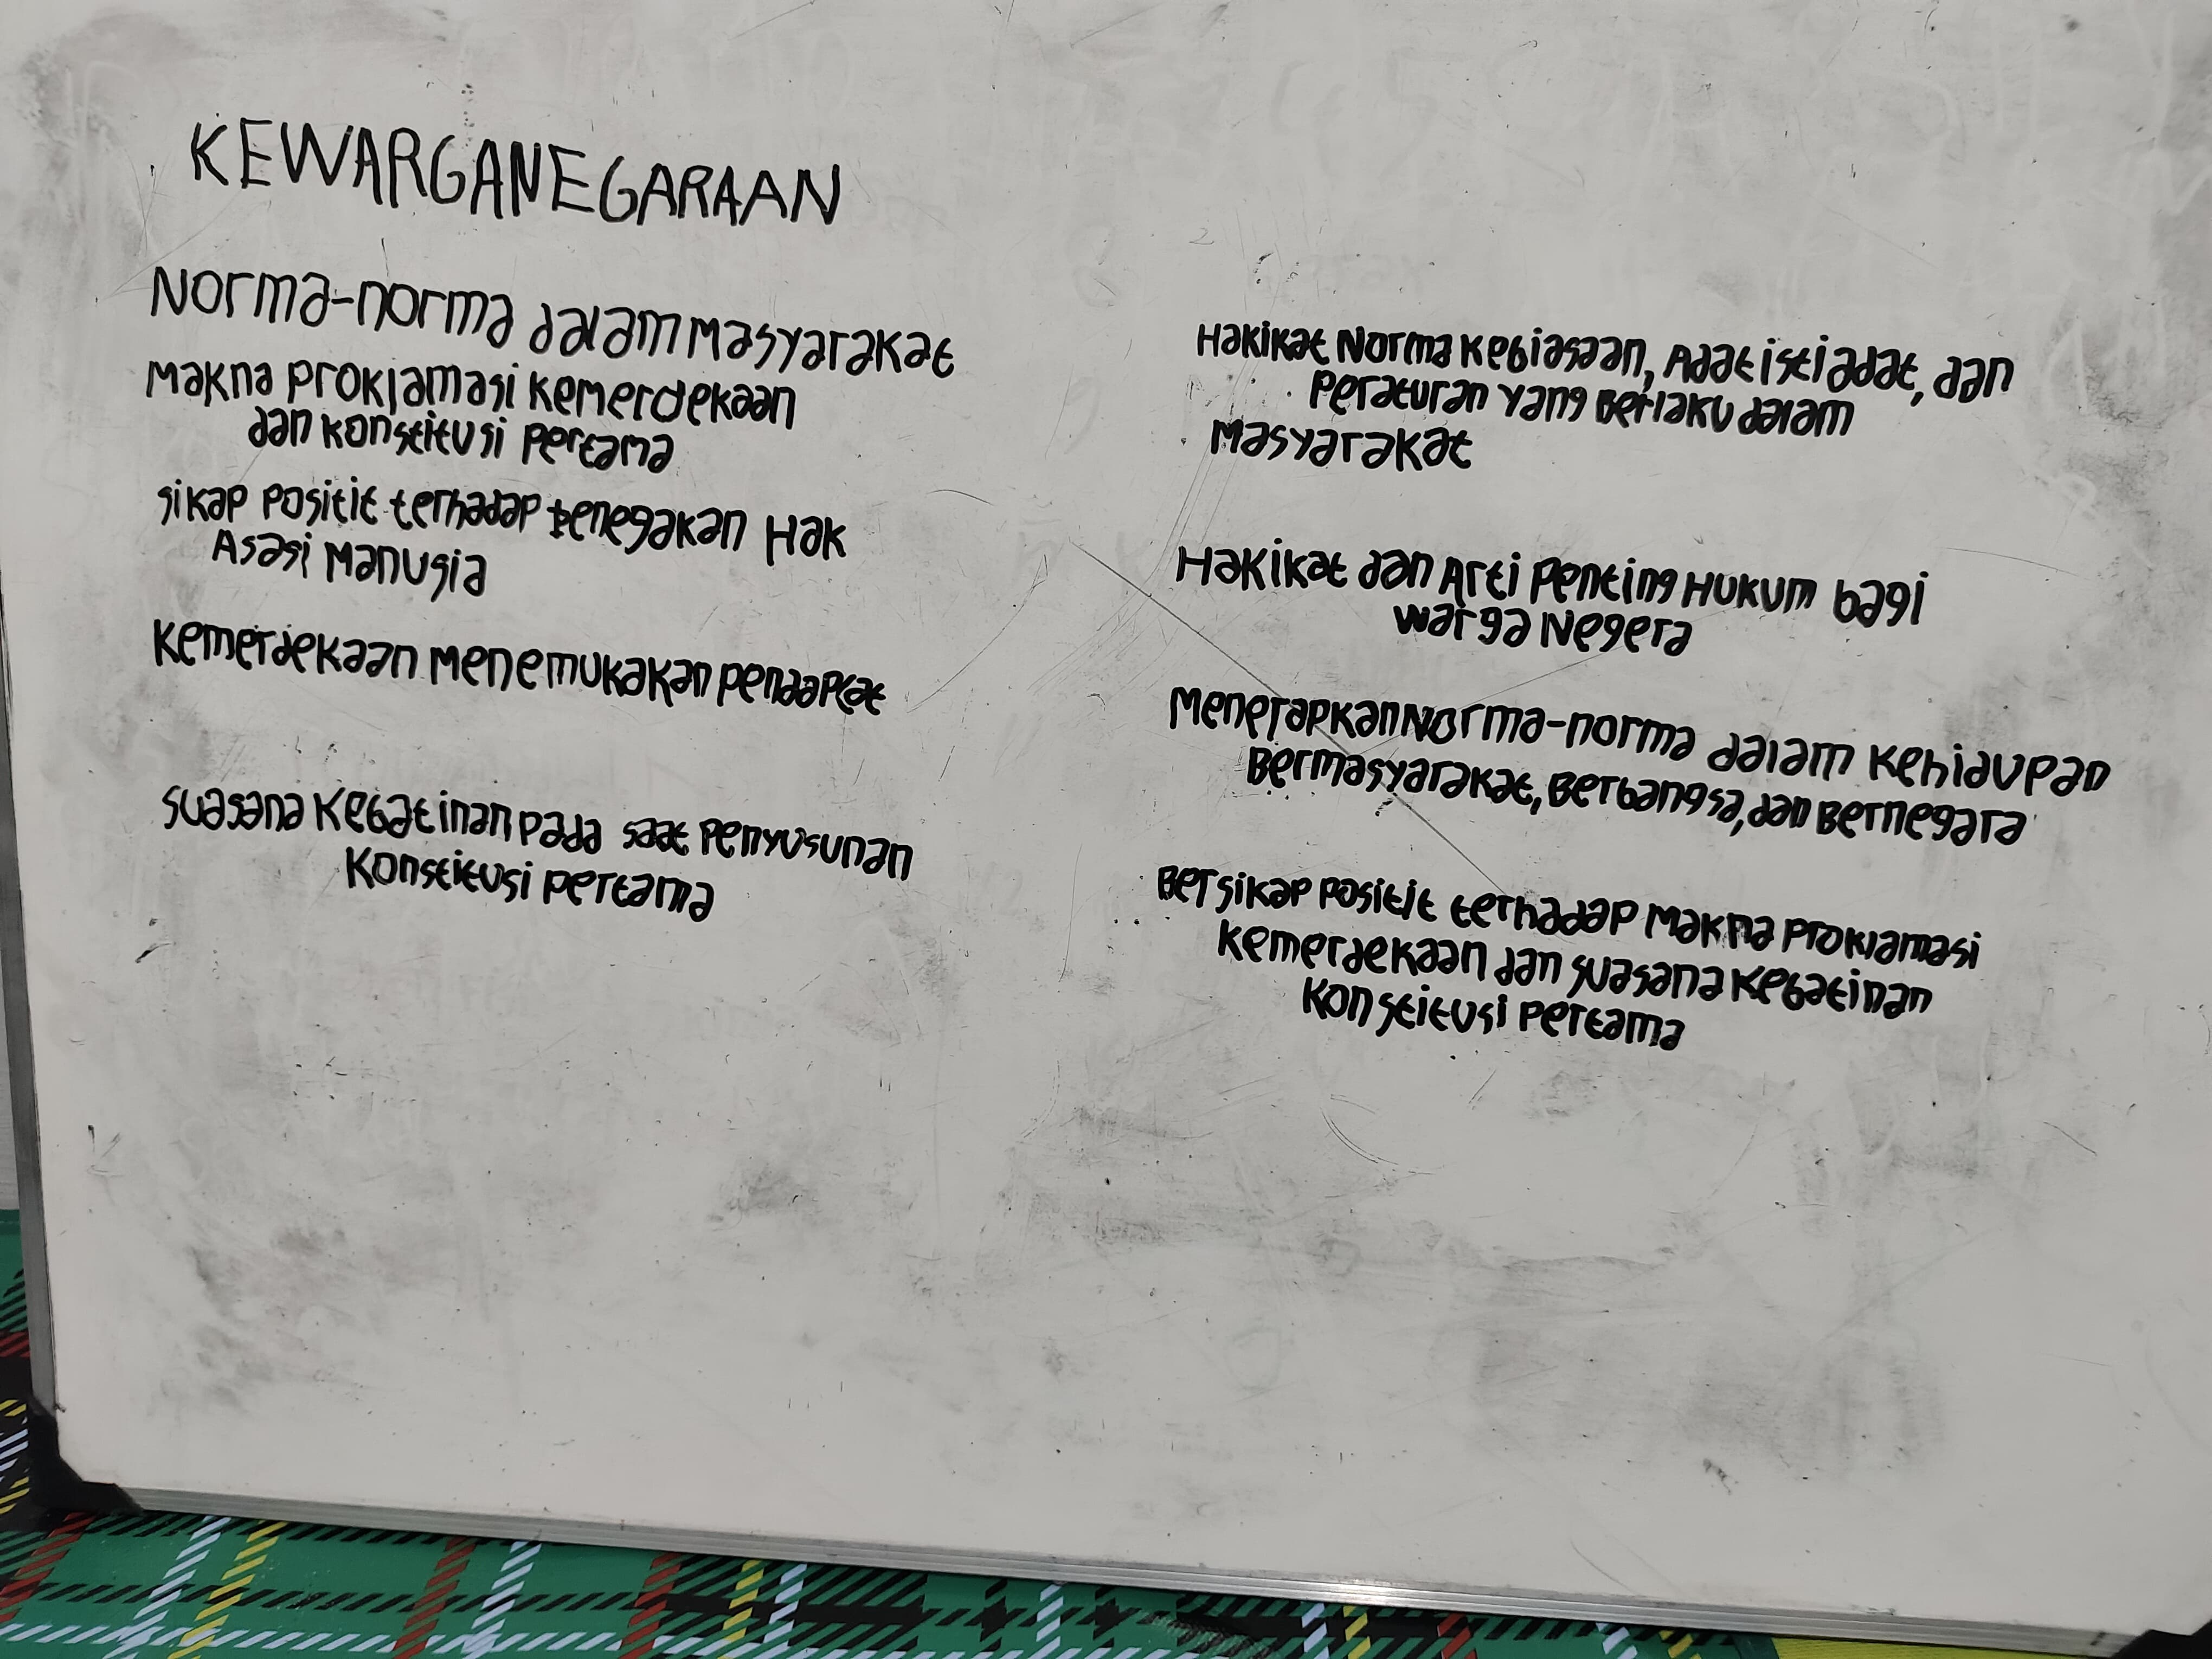 KEWARGANEGARAAN
Norma-norma dalam Masyarakat
Makna Proklamasi Kemerdekaan
dan Konstitusi Pertama
Sikap Positif terhadap Penegakan Hak
Asasi Manusia
Kemerdekaan Menemukakan Pendapat
Suasana Kebatinan Pada saat Penyusunan
Konstitusi Pertama
Hakikat Norma Kebiasaan, Adat istiadat, dan
Peraturan Yang Berlaku dalam
Masyarakat
Hakikat dan Arti Penting Hukum bagi
Warga Negera
Menerapkan Norma-norma dalam Kehidupan
Bermasyarakat, Berbangsa, dan Bernegara
Bersikap Positif terhadap Makna Proklamasi
Kemerdekaan dan Suasana Kebatinan
Konstitusi Pertama